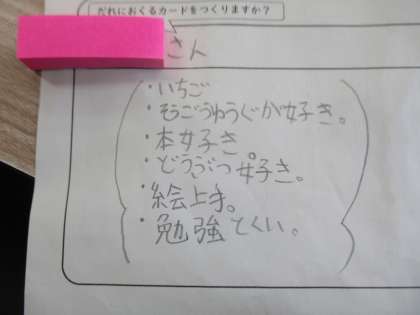 だれにおくるカードをつくりますか？
さん
・いちご
・そうごうゆうぐが好き。
・本好き。
・どうぶつ好き。
・絵上手。
・勉強とくい。